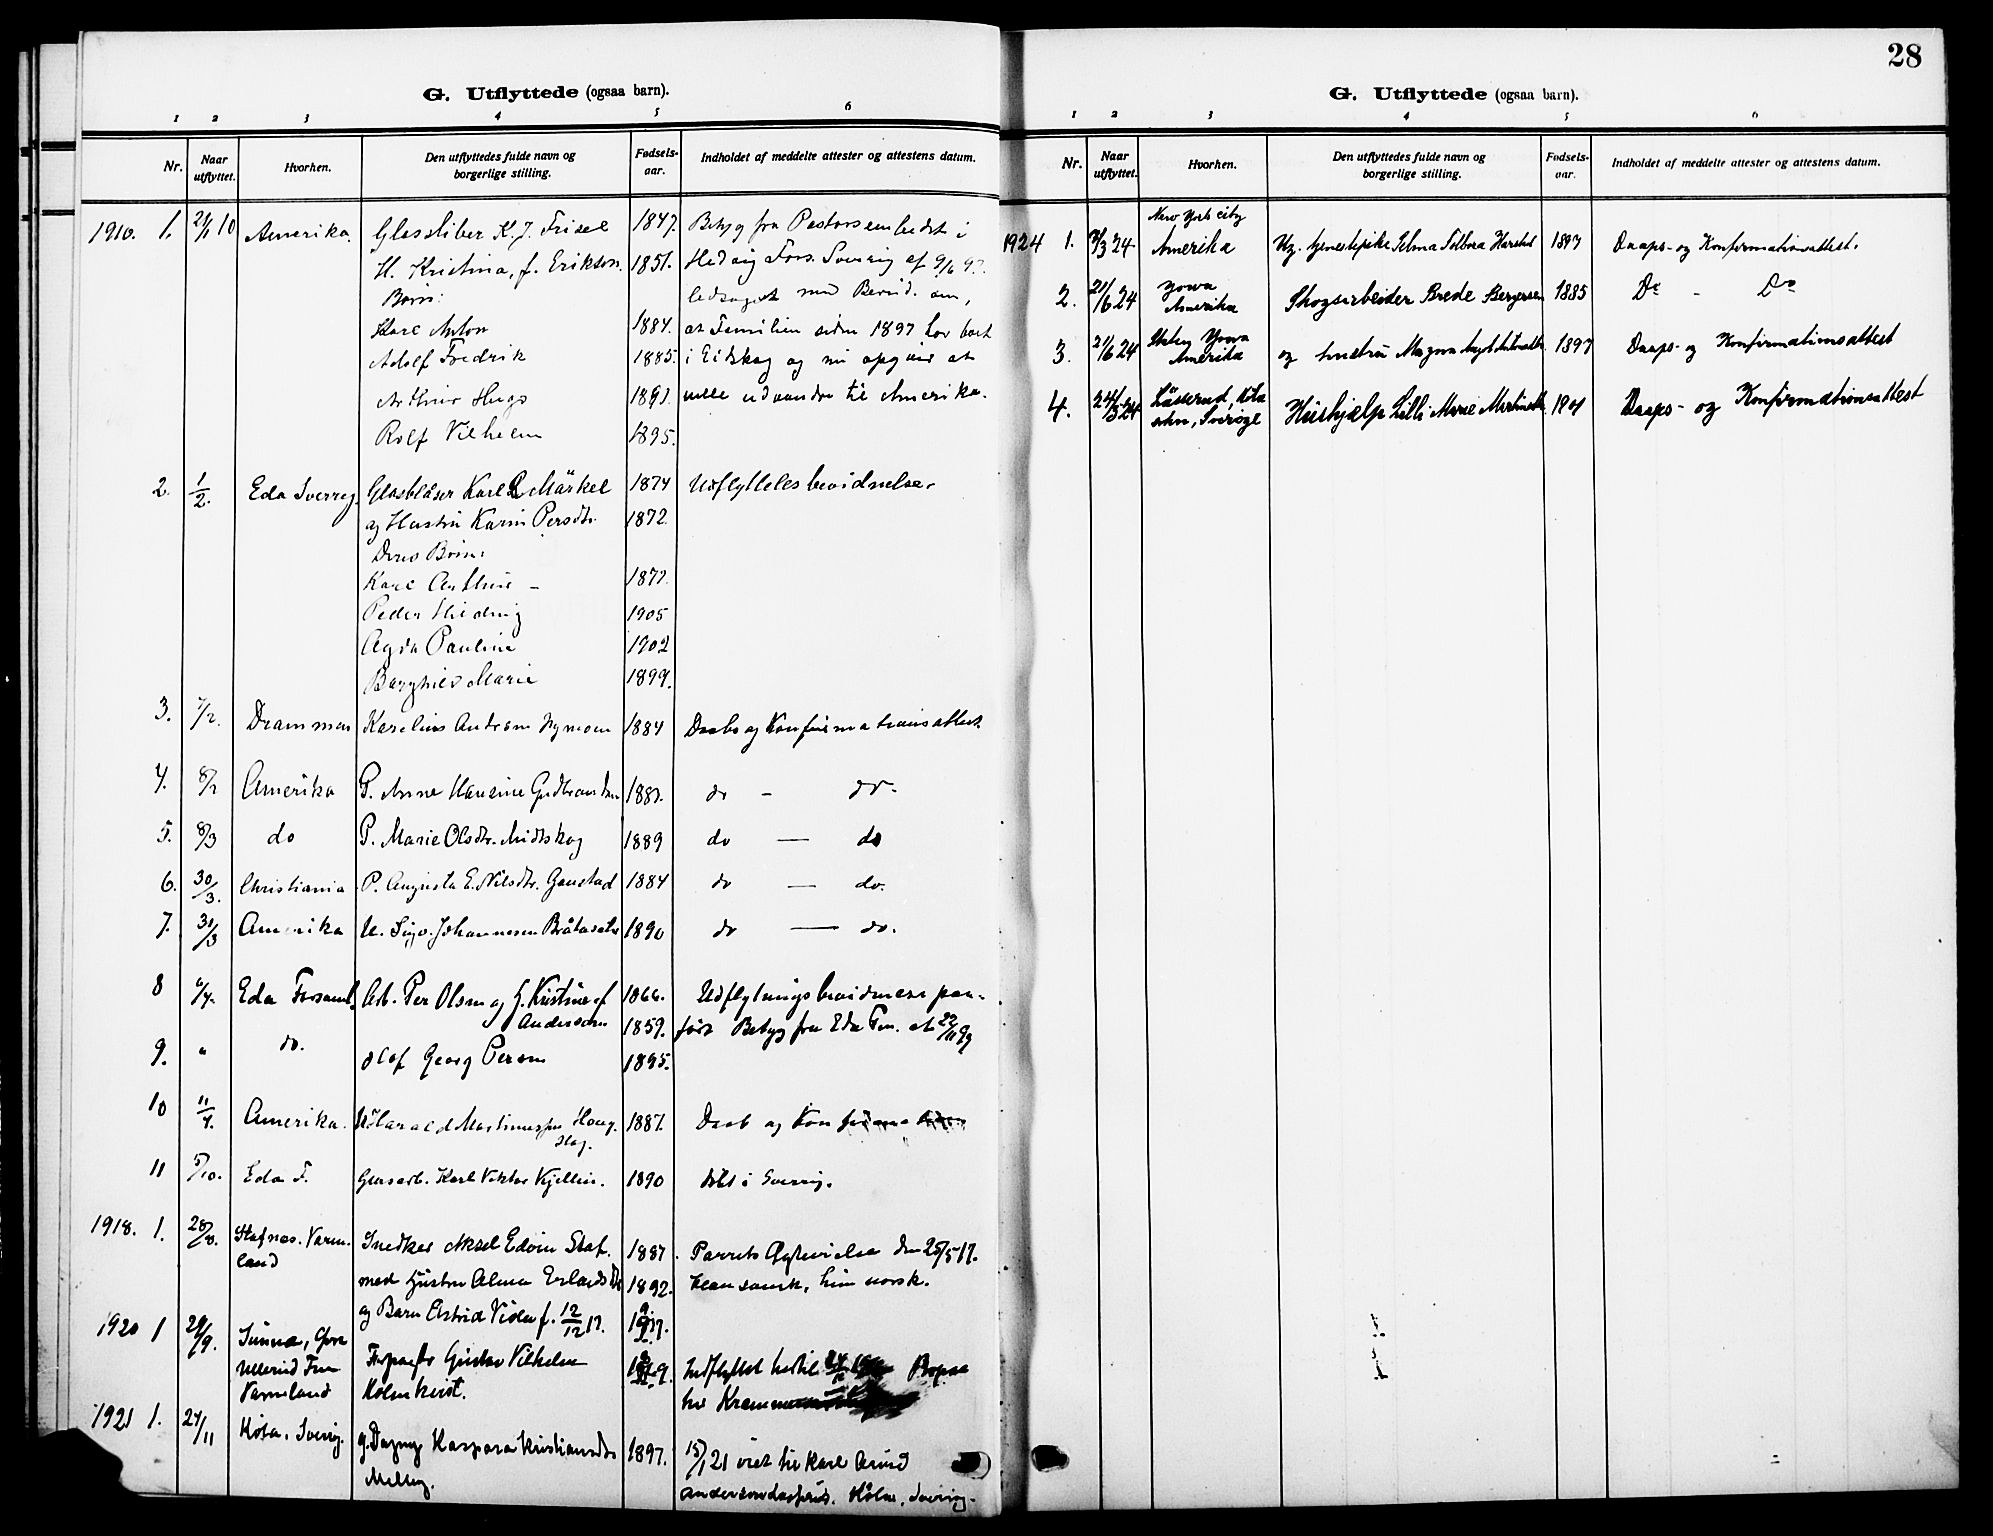 G. Utflyttede (ogsaa barn).
1 2 3 4 5 6
Nr. Naar utflyttet. Hvorhen. Den utflyttedes fulde navn og borgerlige stilling. Fødselsaar. Indholdet af meddelte attester og attestens datum.
1910. 1. 21/1 10 Amerika. Glassliber K. J. Frisel 1847. Betyg fra Pastorsembedet i
H. Kristina, f. Erikson. 1851. Hedvig Fors. Sverrig af 9/6 97.
Børn: ledsaget med Bevid. om,
Karl Anton 1884. at Familien siden 1897 har boet
Adolf Fredrik 1885. i Eidskog og nu opgiver at
Arthur Hugo 1891. ville udvandre til Amerika.
Rolf Vilhelm 1895.
2. 1/2. Eda Sverrig. Glasblåser Karl Märkel 1874 Udflyttelsesbevidnelse.
og Hustru Karin Persdtr. 1872.
Deres Børn:
Karl Arthur - 1897.
Peder Hedvig 1905
Agda Paulina 1902
Borghild Marie 1899.
3. 7/2. Drammen Karelius Andersen 1884 Daabs og Konfirmationsattest.
4. 8/2 Amerika P. Anne Hansine Gudbrandsen 1887. do - do.
5. 8/3 do P. Marie Olsdtr. Midtskog 1889 do — do
6. 30/3. Christiania P. Augusta E. Nilsdtr. Gaustad 1884 do — do.
7. 30/3 Amerika U. Johannesen Bråtasæter 1890 do — do.
8 6/4. Eda Forsaml. Arb. Per Olsen og H. Kristine f. 1866. Udflytningsbevidnelse paa-
Anderson 1859. ført Betyg fra Eda Fors. at 22/11 99
9. " do. Olof Georg Persen 1895.
10 11/4. Amerika. U. Harald Martinussen Haug- 1887. Daab og Konfirmation
11 5/10. Eda F. Glasarb. Karl Viktor Kjellin. 1890 døbt i Sverrig.
1918. 1. 28/8. Stafnas. Varm- Snedker Aksel Edvin Staf. 1887. Parrets Ægtevielse den 25/5 17.
land med Hustru Alma Erlandsdtr 1892. Han svensk, hun norsk.
og Barn Astrid Viola f. 12/12 17. 1917.
1920 1 29/9. Sunne, Øvre Gustav Vilhelm Indflyttet hertil
Ullerud Fors. Holmkvist.
Varmland
1921 1. 24/11 Köla, Sverig. g. Dagny Kaspara Kristiansdtr 1897. 15/1 21 viet til Karl Arvid
Melby. Köla, Sverrig.
28
G. Utflyttede (ogsaa barn).
1 2 3 4 5 6
Nr. Naar utflyttet. Hvorhen. Den utflyttedes fulde navn og borgerlige stilling. Fødselsaar. Indholdet af meddelte attester og attestens datum.
New York city
1924 1. 3/3 24 Amerika Ug. tjenestepike Selma Solbora Harstad 1897 Daaps- og Konfirmationsattest.
2. 21/6 24 Yowa Amerika Skogsarbeider Brede Bergersen 1885 Do - Do
3. 21/6 24 Staten Yowa Amerika og hustru Magna 1897 Daaps- og Konfirmationsattest
4. 24/3 24 Lässerud, Köla sokn, Sverige Hushjælp Lilli Marie Martinsdtr. 1901 Daaps- og Konfirmationsattest